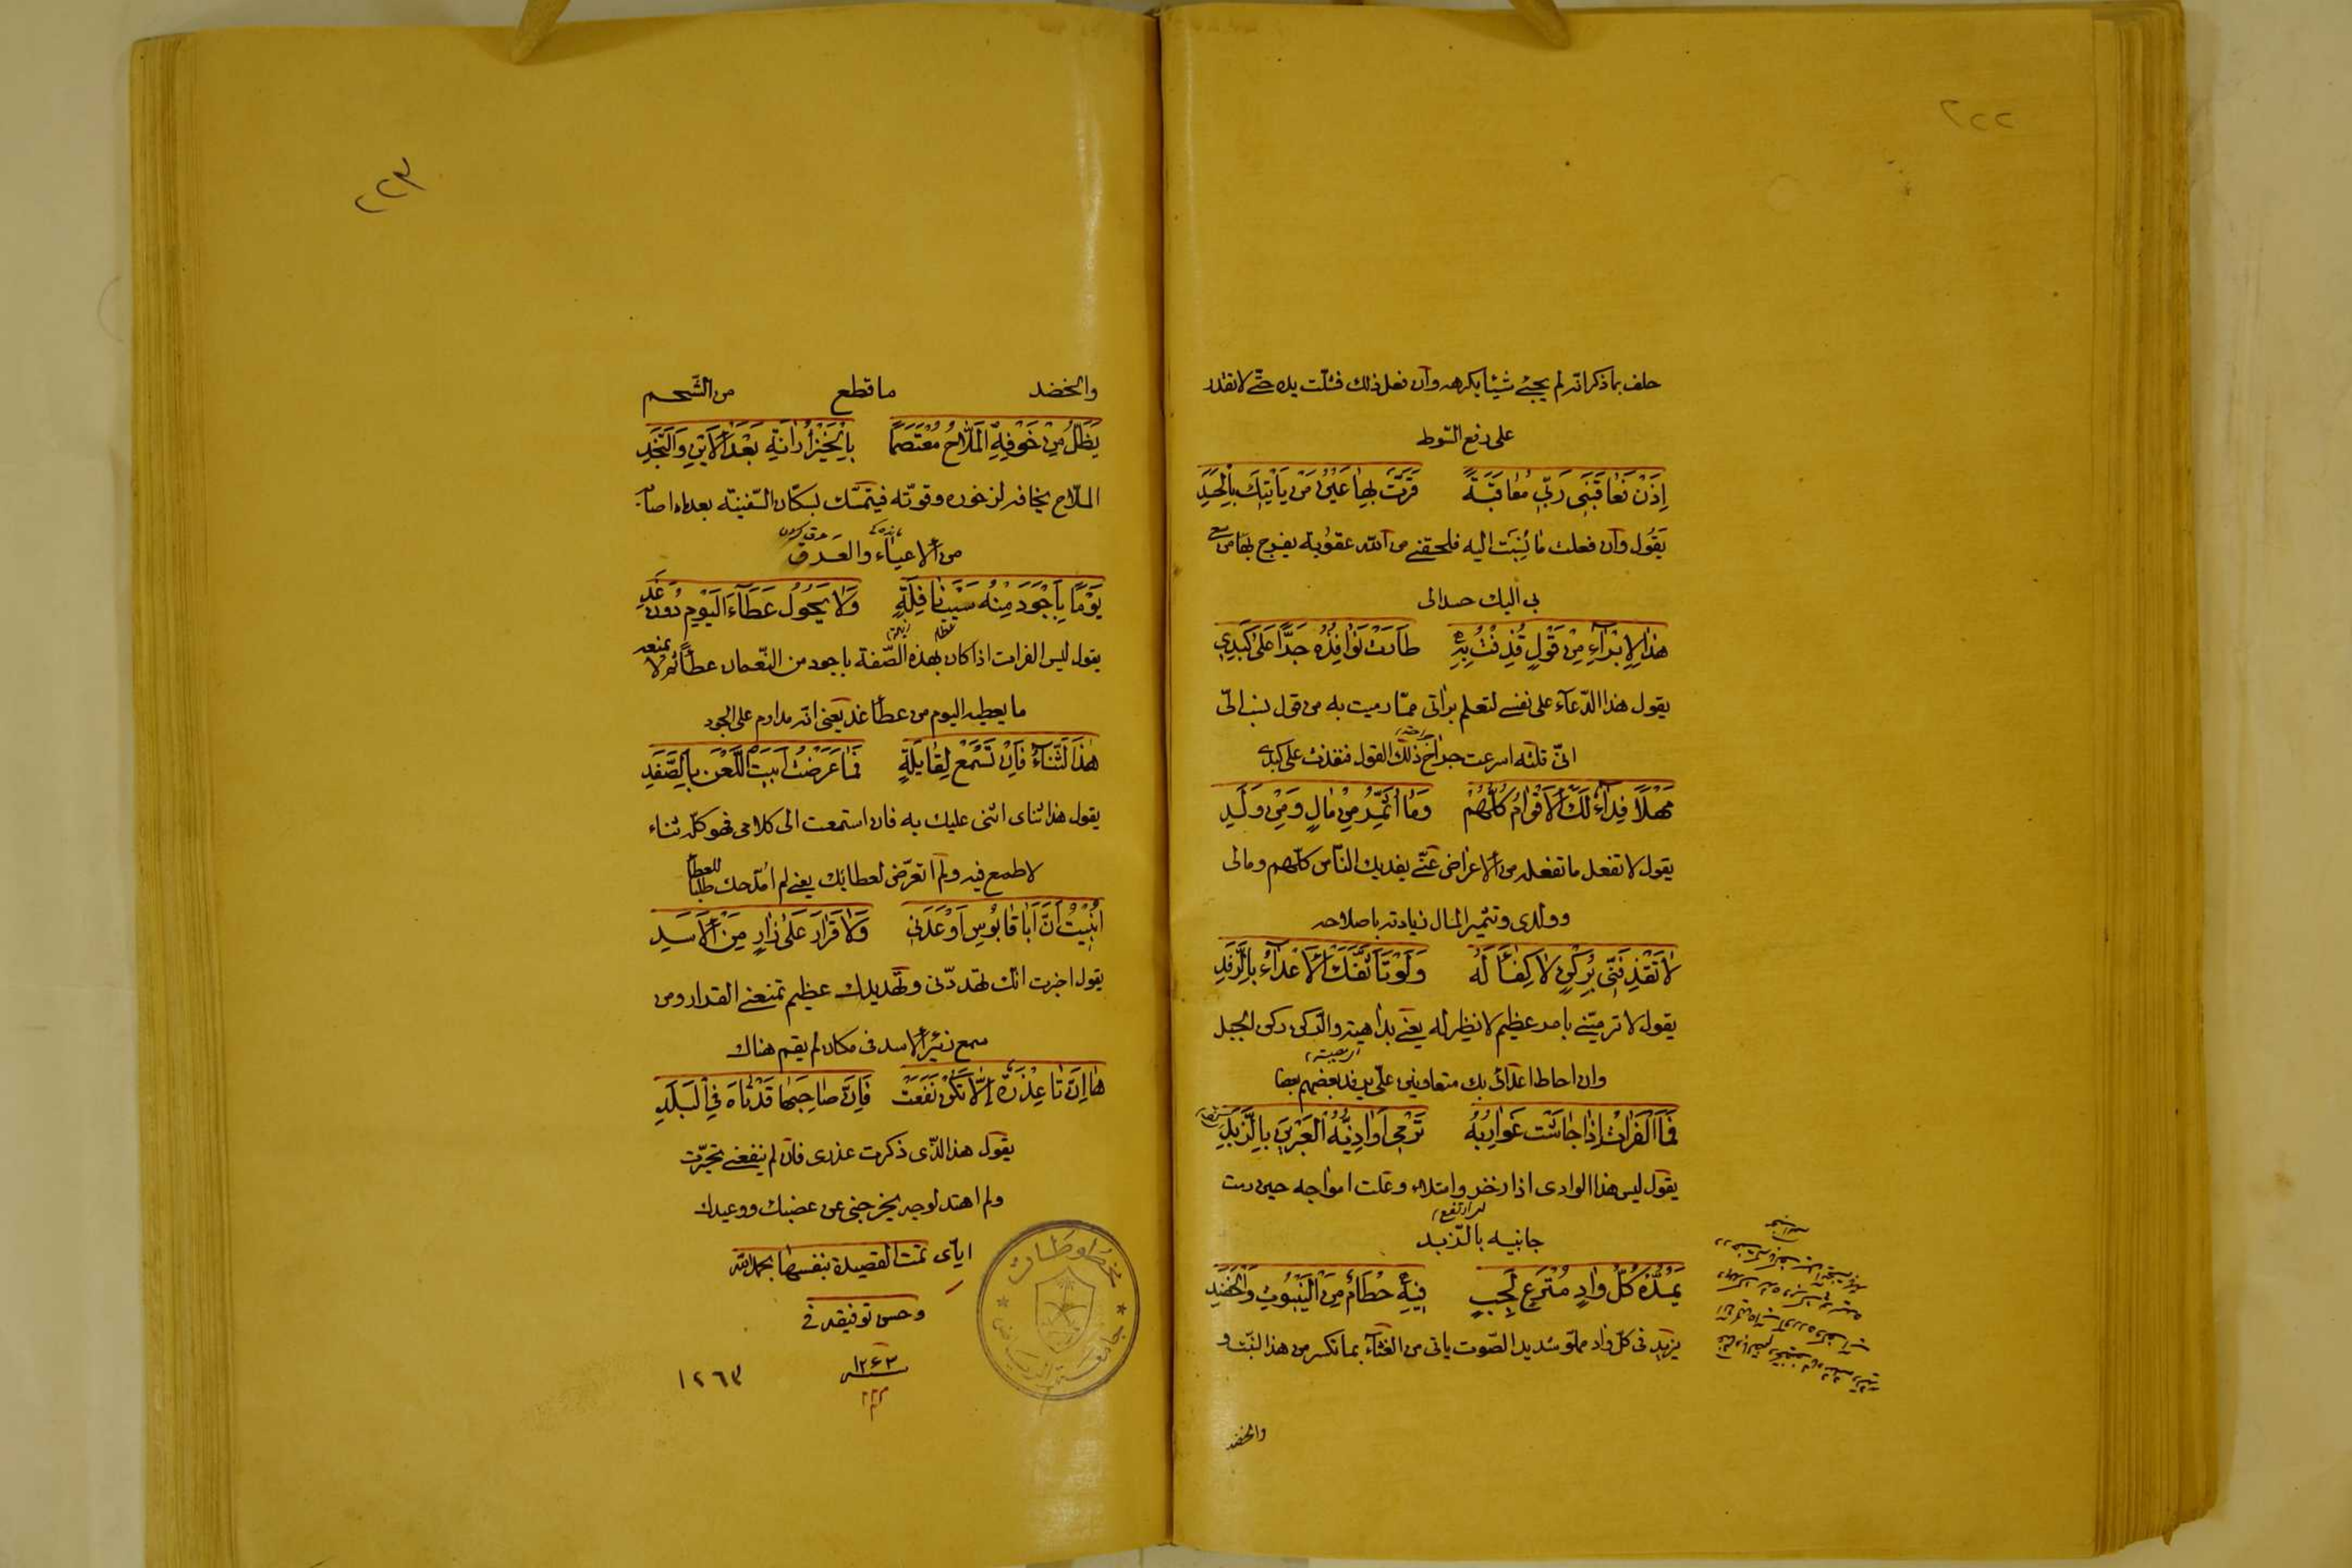 ٢٢٢
حلف بما ذكر انّه لم يجئ شيئا يكرهه وان فعل ذلك فشلّت يده حتّى لا تقدر
على رفع السّوط
اِذَنْ فَعٰاقَبَنٖى رَبّٖى مُعٰاقَبَةً قَرَّتْ بِهٰا عَيْنُ مَنْ يَأْتٖيكَ بِالْحَسَدِ
يقول وان فعلت ما نُسِبَت اليه فلحقنى من اللّه عقوبة يفرح بها من سعى
بى اليك حسدا لى
هٰذٰا لِاِبْرٰاءِ مِنْ قَوْلٍ قُذِفْتُ بِهٖ طٰارَتْ نَوٰافِذُهُ حَدًّا عَلٰى كَبَدٖى
يقول هذا الدّعاء على نفسى لتعلم برائتى ممّا رميت به من قول نسب الىّ
انّى قلته اسرعت جراح ذلك القول فنفذت على كبدى
مَهْلاً فِدٰاءً لَكَ الْاَقْوٰامُ كُلُّهُمْ وَمٰا اُثَمِّرُ مِنْ مٰالٍ وَمِنْ وَلَدِ
يقول لا تفعل ما تفعله من الاعراض عنّى يفديك النّاس كلّهم ومالى
وولدى وتثمير المال زيادته باصلاحه
لٰا تَقْذِفَنّٖى بِرُكْنٍ لٰا كِفٰاءَ لَهُ وَلَوْ تَأَثَّفَكَ الْاَعْدٰاءُ بِالرِّفَدِ
يقول لا ترميّنى بامر عظيم لا نظير له يعنى بداهية والركن ركن الجبل
وان احاط اعدائى بك متعاونين علىّ يرفد بعضهم بعضا
فَمَا الْفُرٰاتُ اِذٰا جٰاشَتْ غَوٰارِبُهُ تَرْمٖى اَوٰاذِيُّهُ الْعَبْرَيْنِ بِالزَّبَدِ
يقول ليس هذا الوادى اذا زخر وامتلاء وعلت امواجه حين رمت
جانبيه بالزّبد
يَمُدُّهُ كُلُّ وٰادٍ مُتْرَعٍ لَجِبٍ فٖيهِ حُطٰامٌ مِنَ الْيَنْبُوتِ وَالْخَضَدِ
يزيد فى كلّ واد مملوّ شديد الصّوت ياتى من الغثآء بما تكسر من هذا النّبت و
والخضد
٢٢٣
والخضد ما قطع من الشّحم
يَظَلُّ مِنْ خَوْفِهِ الْمَلّٰاحُ مُعْتَصِمًا بِالْخَيْزُرٰانَةِ بَعْدَ الْاَيْنِ وَالنَّجَدِ
الملّاح يخافه لزخوره وقوّته فيتمسّك بسكّان السّفينة بعد ما اصابه
من الاعياء والعَرَق
يَوْمًا بِاَجْوَدَ مِنْهُ سَيْبَ نٰافِلَةٍ وَلٰا يَحُولُ عَطٰاءُ الْيَوْمِ دُونَ غَدِ
يقول ليس الفرات اذا كان بهذه الصّفة باجود من النّعمان عطائه لا يمنعه
ما يعطيه اليوم من عطاء غد يعنى انّه مداوم على الجود
هٰذَا الثَّنٰاءُ فَاِنْ تَسْمَعْ لِقٰايِلَةٍ فَمٰا عَرَضْتُ اَبَيْتَ اللَّعْنَ بِالصَّفَدِ
يقول هذا ثناى اثنى عليك به فان استمعت الى كلامى فهو كلّه ثناء
لا طمع فيه ولم اتعرّض لعطائك يعنى لم امدحك طلبا للعطاء
اُنْبِئْتُ اَنَّ اَبٰا قٰابُوسَ اَوْعَدَنٖى وَلٰا قَرٰارَ عَلٰى زَارٍ مِنَ الْاَسَدِ
يقول اخبرت انّك تهدّدنى وتهديدك عظيم تمنعنى القرار ومن
سمع زئير الاسد فى مكان لم يقم هناك
هٰا اِنَّ تٰا عِذْرَةٌ اِلّٰا تَكُنْ نَفَعَتْ فَاِنَّ صٰاحِبَهٰا قَدْ تٰاهَ فِى الْبَلَدِ
يقول هذا الّذى ذكرت عذرى فان لم ينفعنى تحيّرت
ولم اهتد لوجه يخرجنى عن غضبك ووعيدك
ايّاى تمت القصيدة بنفسها بحمد اللّه
وحسن توفيقه فى
سنه ١٢٦٣
١٢٦٣
مخطوطات
جامعة الرياض